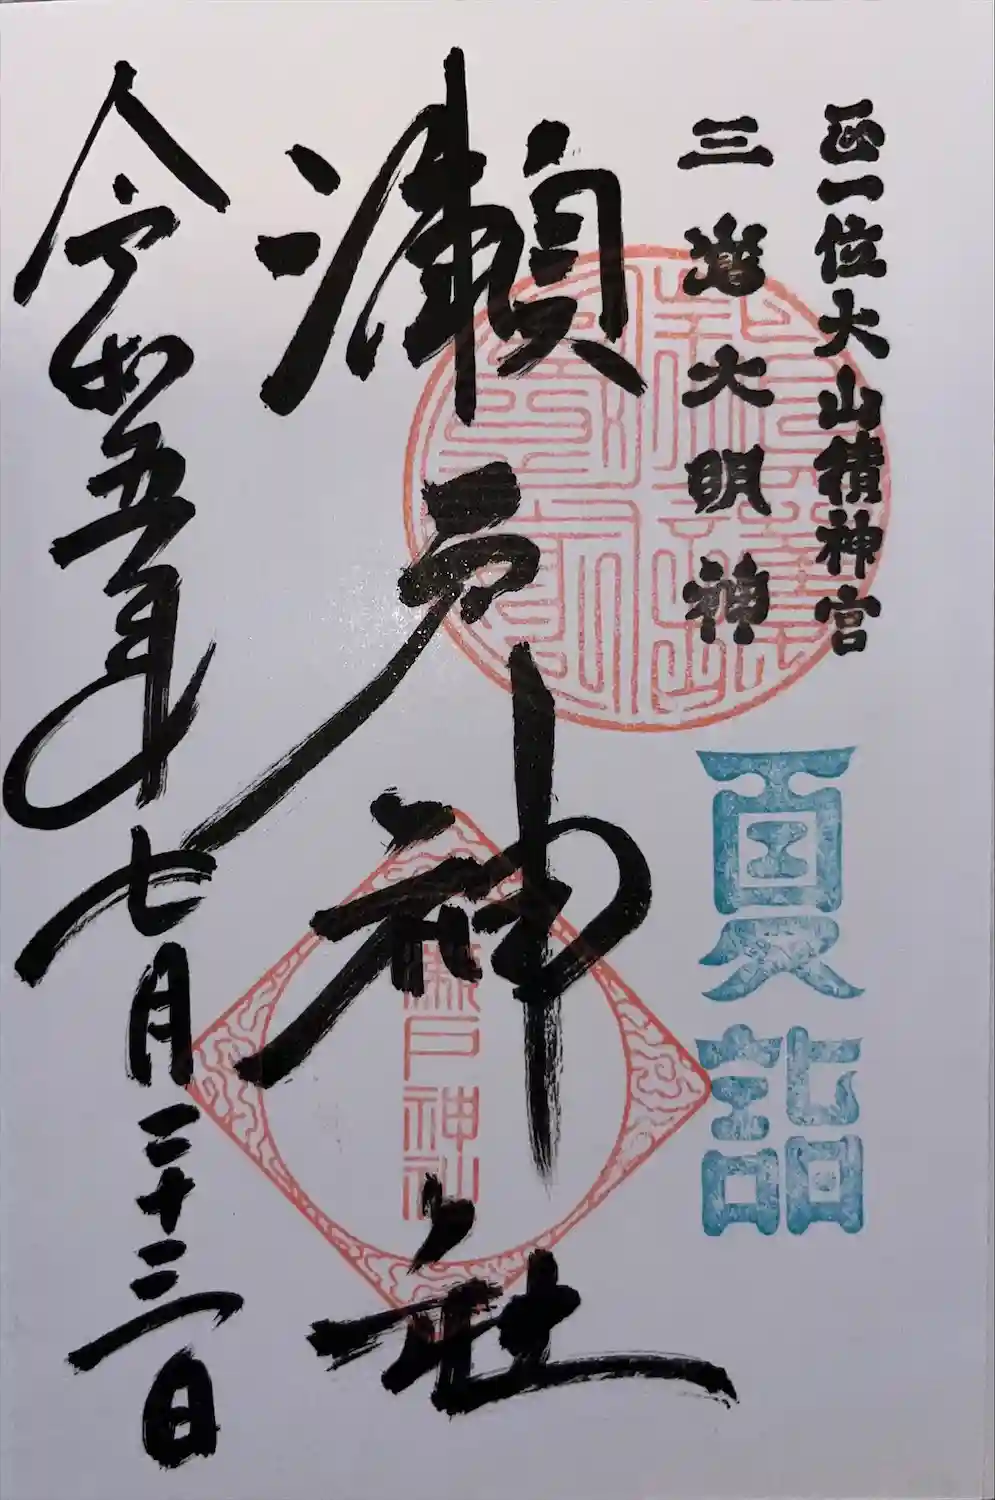 正一位大山積神宮
三嶋大明神
夏詣
瀬戸神社
瀬戸神社
令和五年七月二十三日